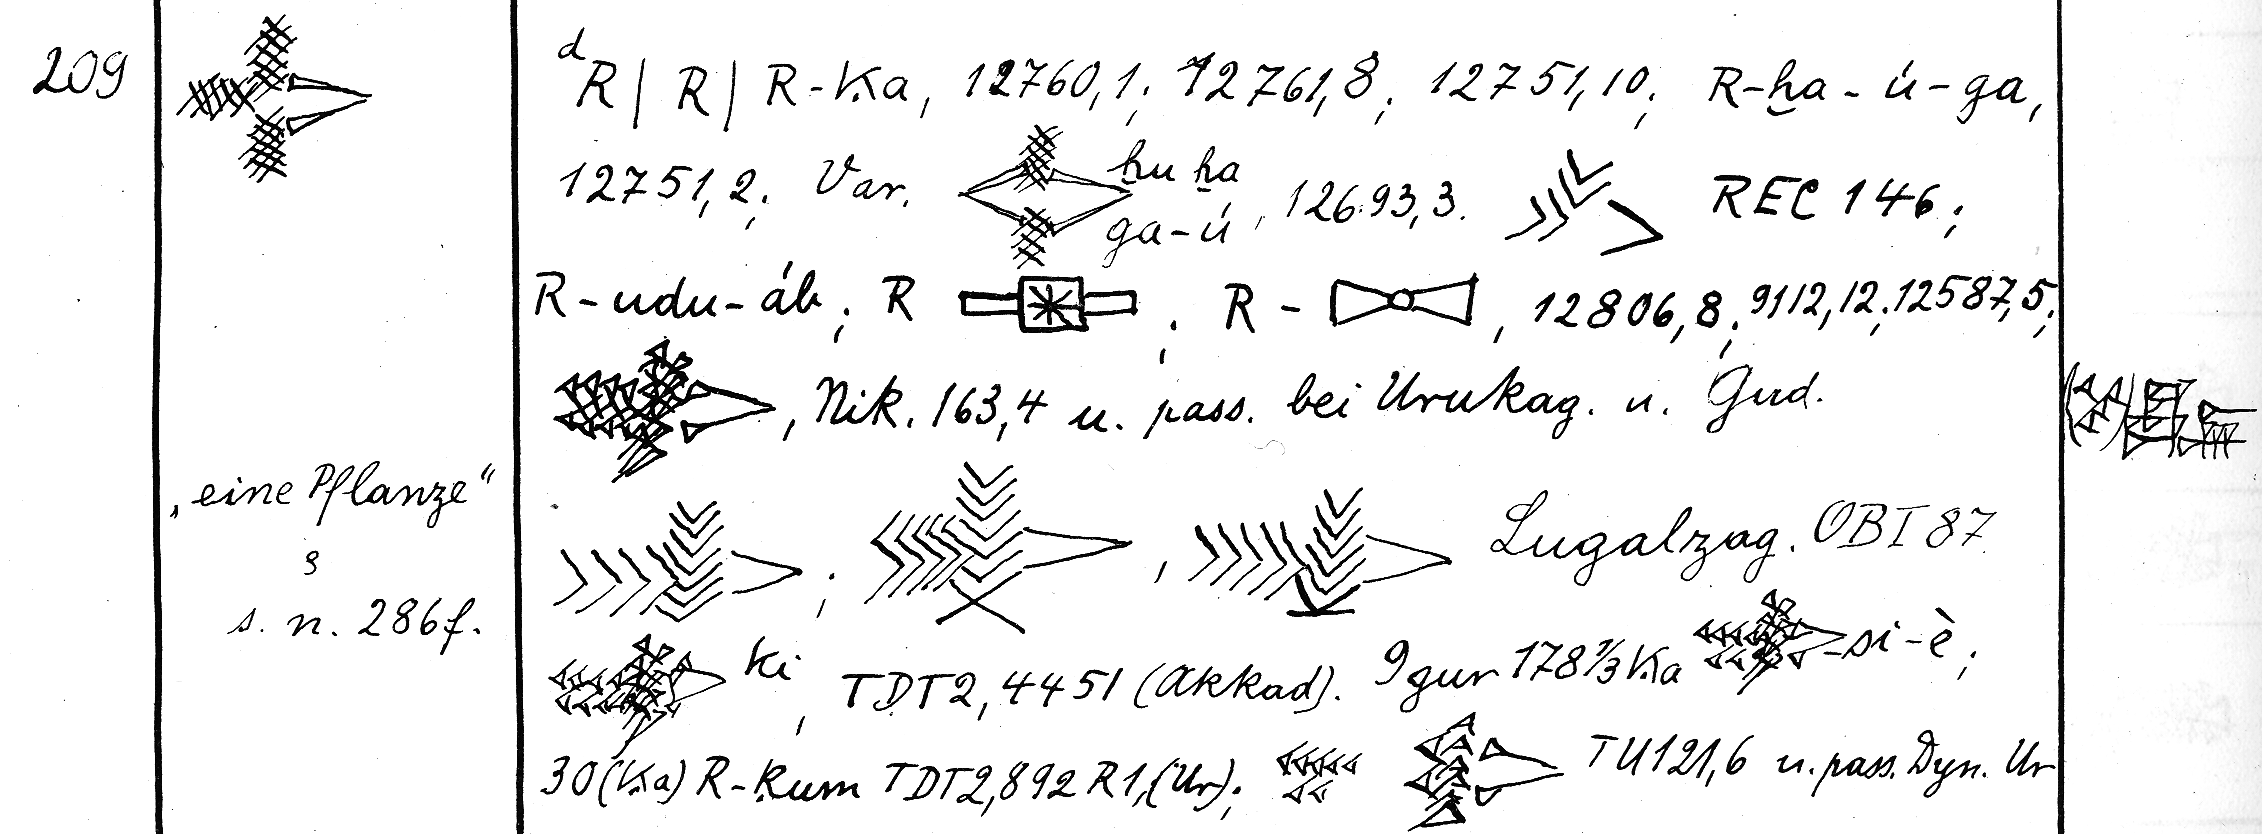 209
ᵈR | R | R-Ka, 12760,1; 12761,8; 12751,10; R-ḫa-ú-ga,
12751,2; Var. ḫu ḫa ga-ú, 12693,3. REC 146;
R-udu-áb; R ; R- , 12806,8; 9112,12; 12587,5;
, Nik. 163,4 u. pass. bei Urukag. u. Gud.
„eine Pflanze“
; , Lugalzag. OBI 87
s. n. 286f.
ki, TDT2, 4451 (Akkad). 9 gur 178 1/3 Ka -si-è;
30 (Ka) R-ḳum TDT2, 892 R1, (Ur); TU121,6 u. pass. Dyn. Ur